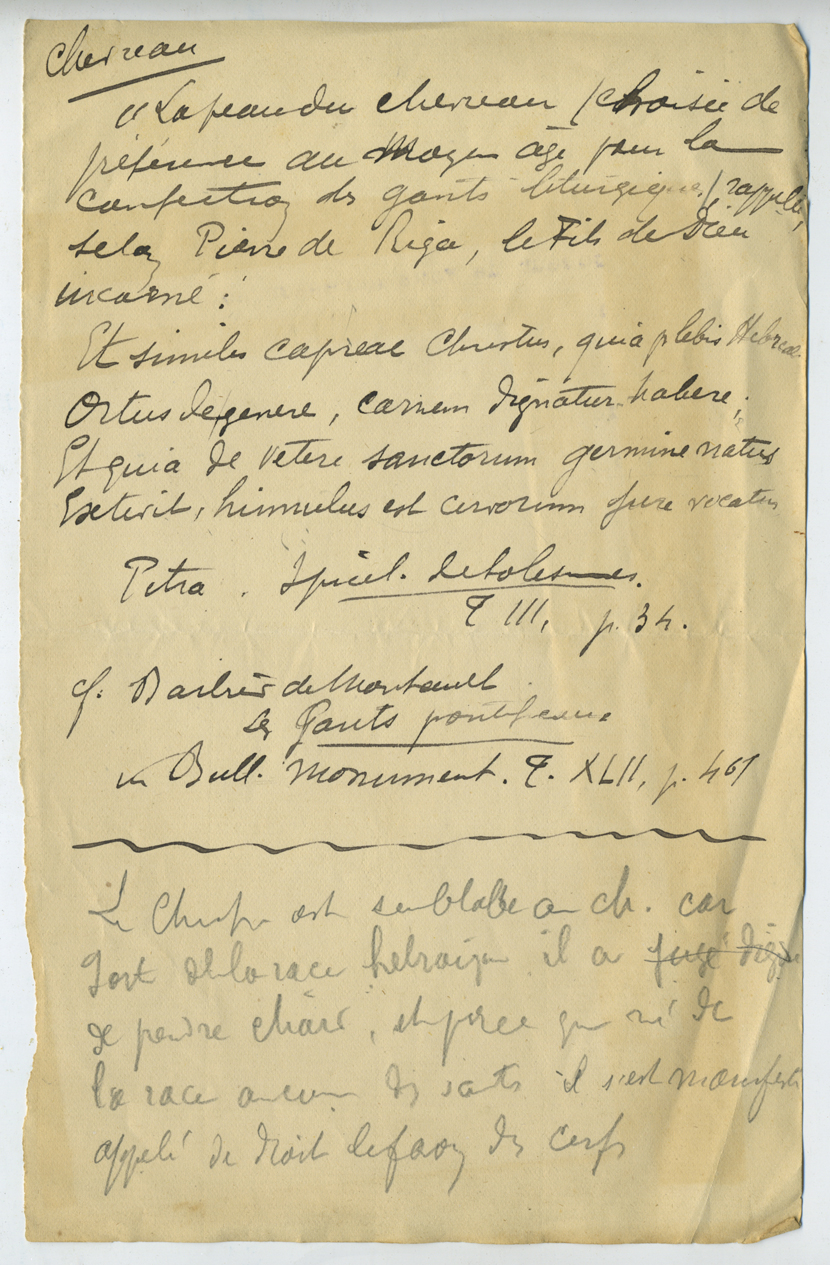 Chevreau
"La peau du chevreau (choisie de
préférence au Moyen âge pour la
confection des gants liturgiques) rappelle,
selon Pierre de Riga, le Fils de Dieu
incarné :
Et similis capreae Christus, quia plebis Hebreae
Ortus de genere, carnem dignatur habere;
Et quia de vetere sanctorum germine natus
Extitit, hinnulus est cervorum jure vocatus
Pitra. Spicil. de Solesmes.
T III, p. 34.
cf. Barbier de Montault
Les Gants pontificaux
in Bull. Monument. T. XLII, p. 461
Le Christ est semblable au ch. car
sort de la race hébraïque il a jugé digne
de prendre chair, et parce que né de
la race ancienne des saints il s'est manifesté
appelé de droit le faon des cerfs